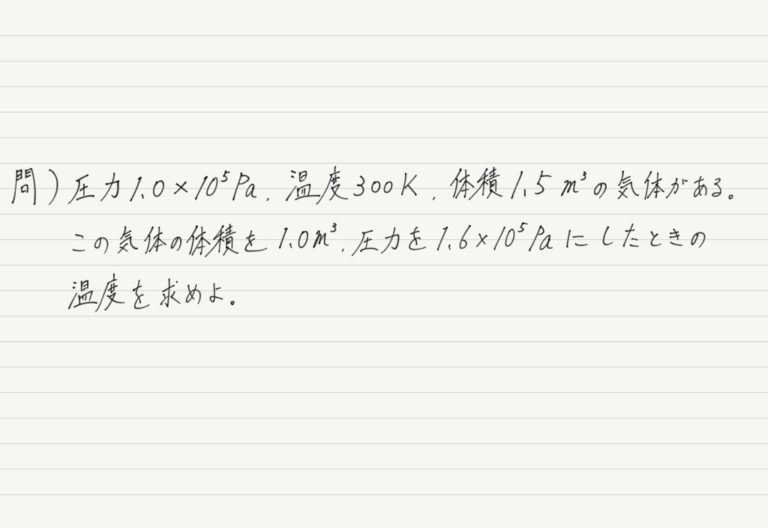 問）圧力1.0×10⁵Pa、温度300K、体積1.5m³の気体がある。
この気体の体積を1.0m³、圧力を1.6×10⁵Paにしたときの
温度を求めよ。